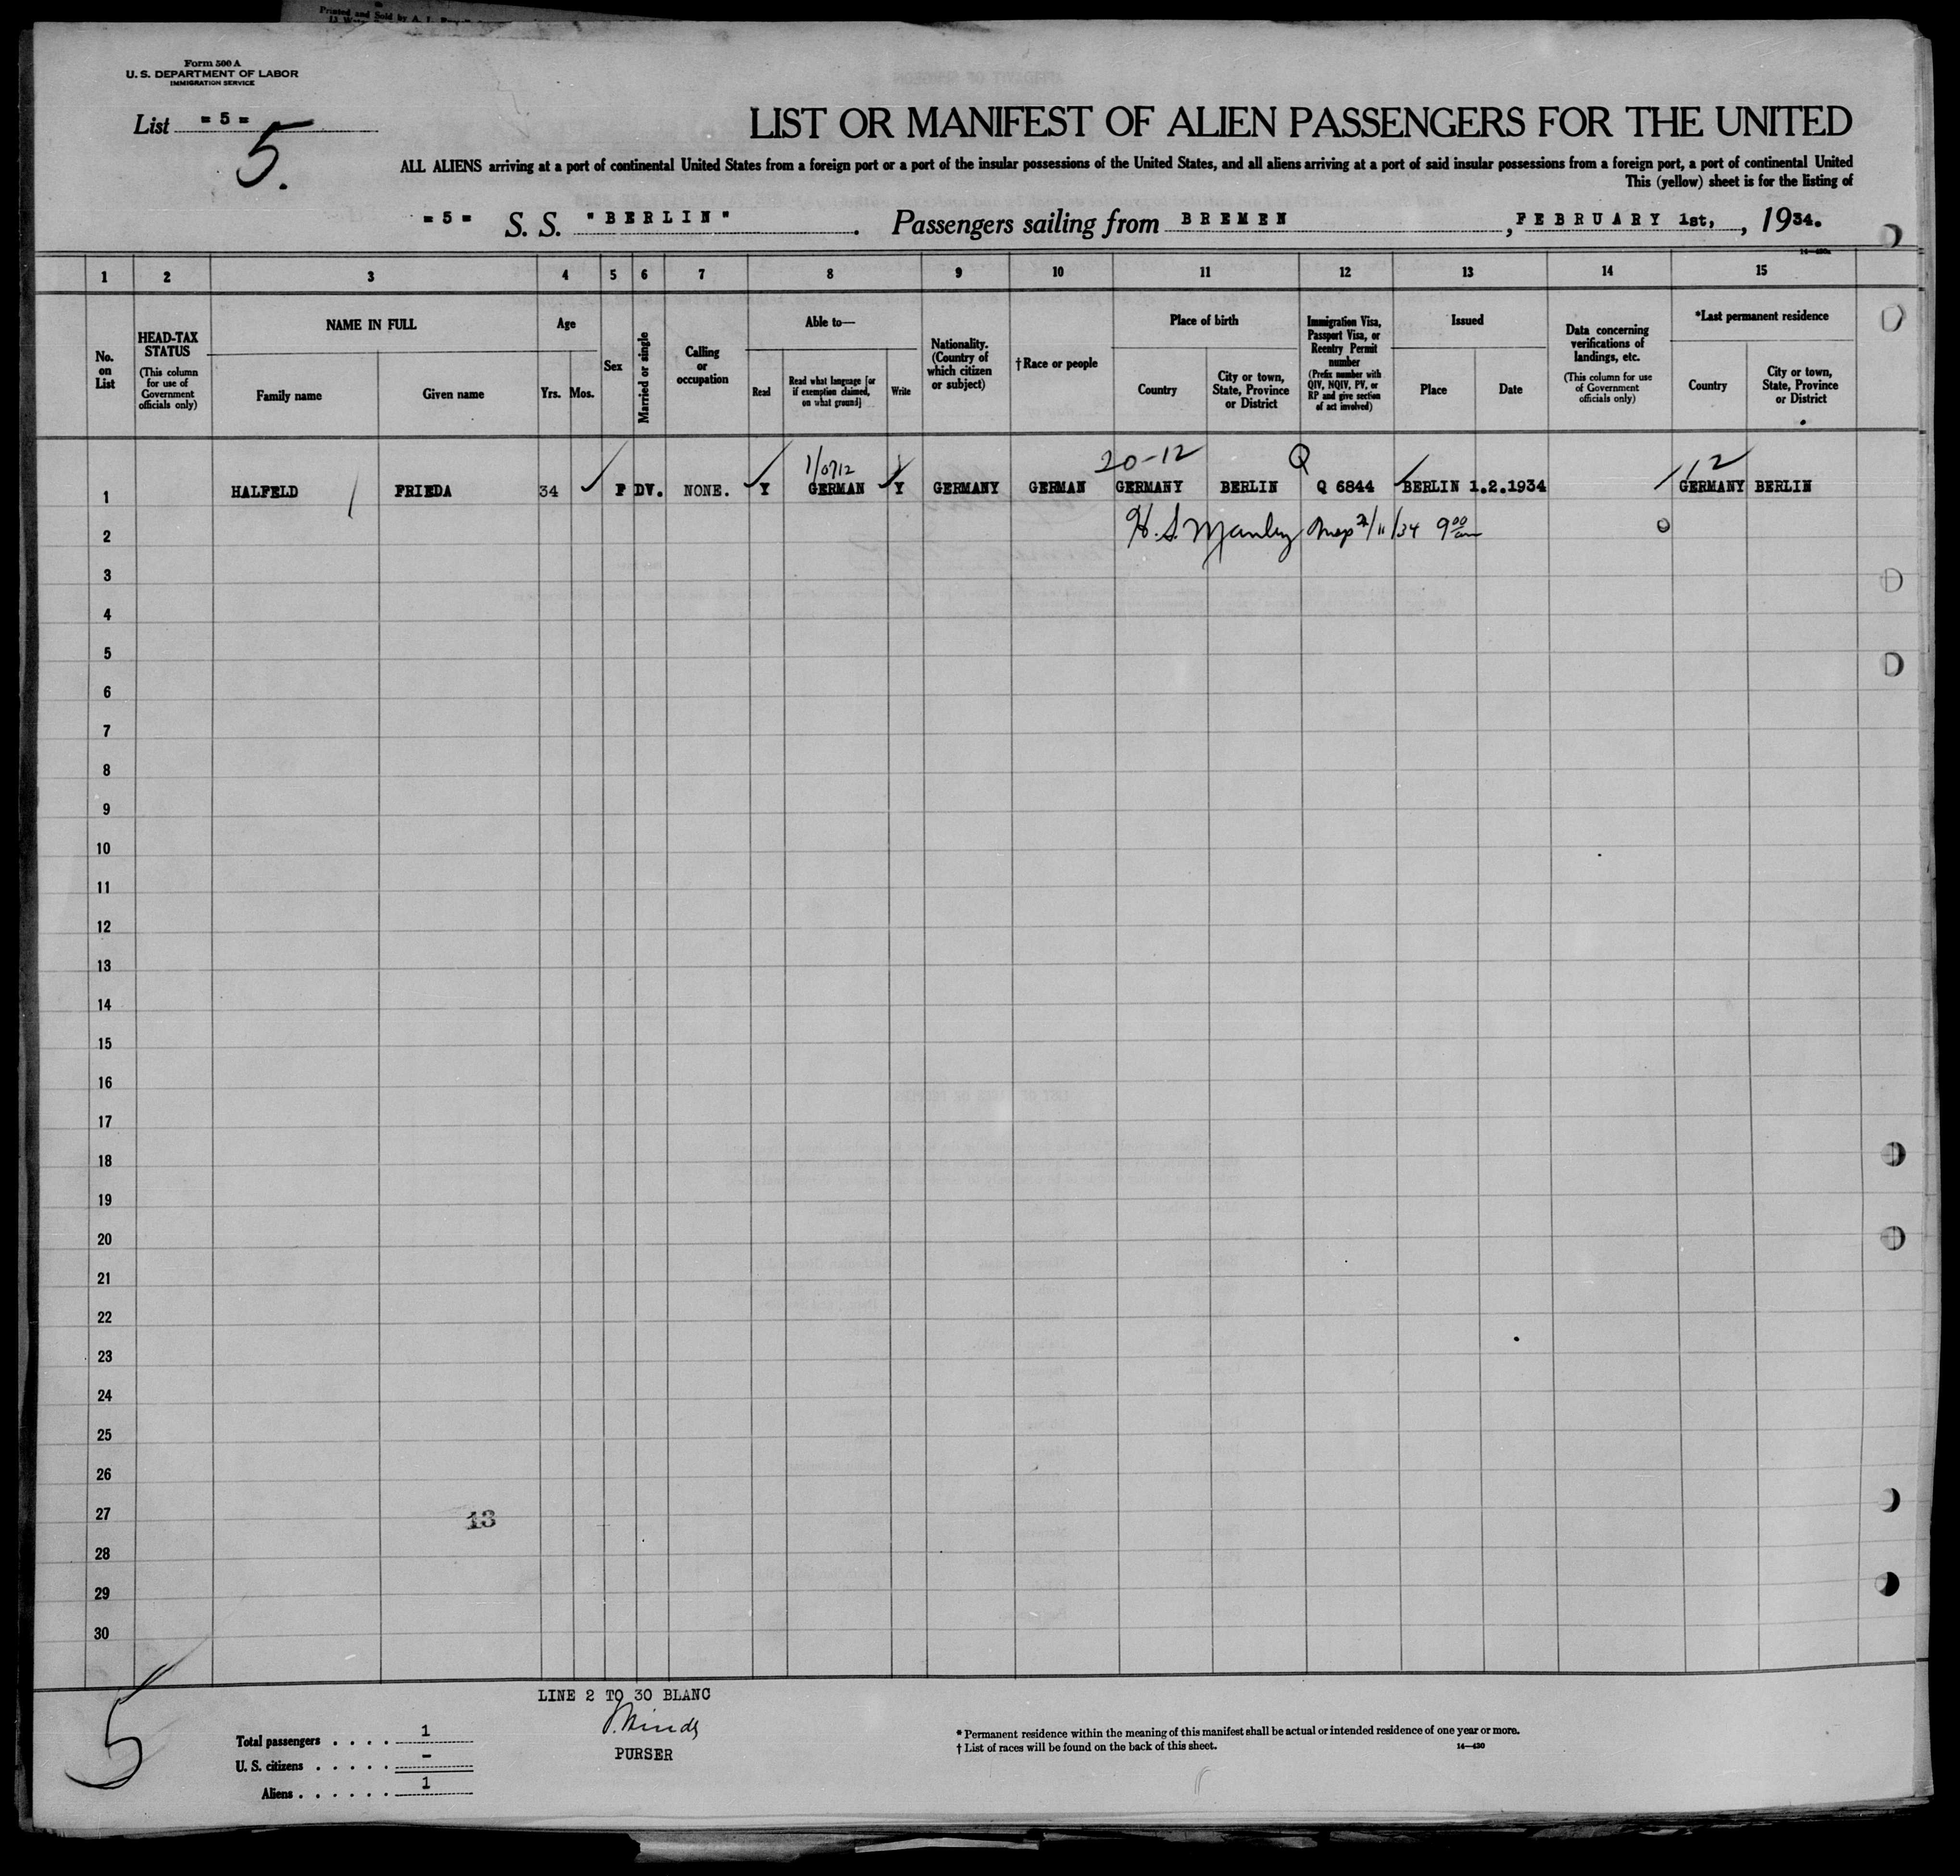 Form 500 A
U. S. DEPARTMENT OF LABOR
IMMIGRATION SERVICE
List = 5 =
5.
LIST OR MANIFEST OF ALIEN PASSENGERS FOR THE UNITED
ALL ALIENS arriving at a port of continental United States from a foreign port or a port of the insular possessions of the United States, and all aliens arriving at a port of said insular possessions from a foreign port, a port of continental United
This (yellow) sheet is for the listing of
= 5 = S. S. "BERLIN". Passengers sailing from BREMEN, FEBRUARY 1st, , 1934.
1 2 3 4 5 6 7 8 9 10 11 12 13 14 15
No. on List
HEAD-TAX STATUS (This column for use of Government officials only)
NAME IN FULL
Family name
Given name
Age
Yrs. Mos.
Sex
Married or single
Calling or occupation
Able to—
Read
Read what language [or if exemption claimed, on what ground]
Write
Nationality. (Country of which citizen or subject)
†Race or people
Place of birth
Country
City or town, State, Province or District
Immigration Visa, Passport Visa, or Reentry Permit number (Prefix number with QIV, NQIV, PV, or RP and give section of act involved)
Issued
Place
Date
Data concerning verifications of landings, etc. (This column for use of Government officials only)
*Last permanent residence
Country
City or town, State, Province or District
20-12 Q 12
1 HALFELD FRIEDA 34 F DV. NONE. Y GERMAN Y GERMANY GERMAN GERMANY BERLIN Q 6844 BERLIN 1.2.1934 GERMANY BERLIN
2 H. S. Manley Insp 2/11/34 9 00 am
3
4
5
6
7
8
9
10
11
12
13
14
15
16
17
18
19
20
21
22
23
24
25
26
27 13
28
29
30
LINE 2 TO 30 BLANC
PURSER
5
Total passengers . . . . 1
U. S. citizens . . . . . –
Aliens . . . . . . 1
* Permanent residence within the meaning of this manifest shall be actual or intended residence of one year or more.
† List of races will be found on the back of this sheet. 14—430